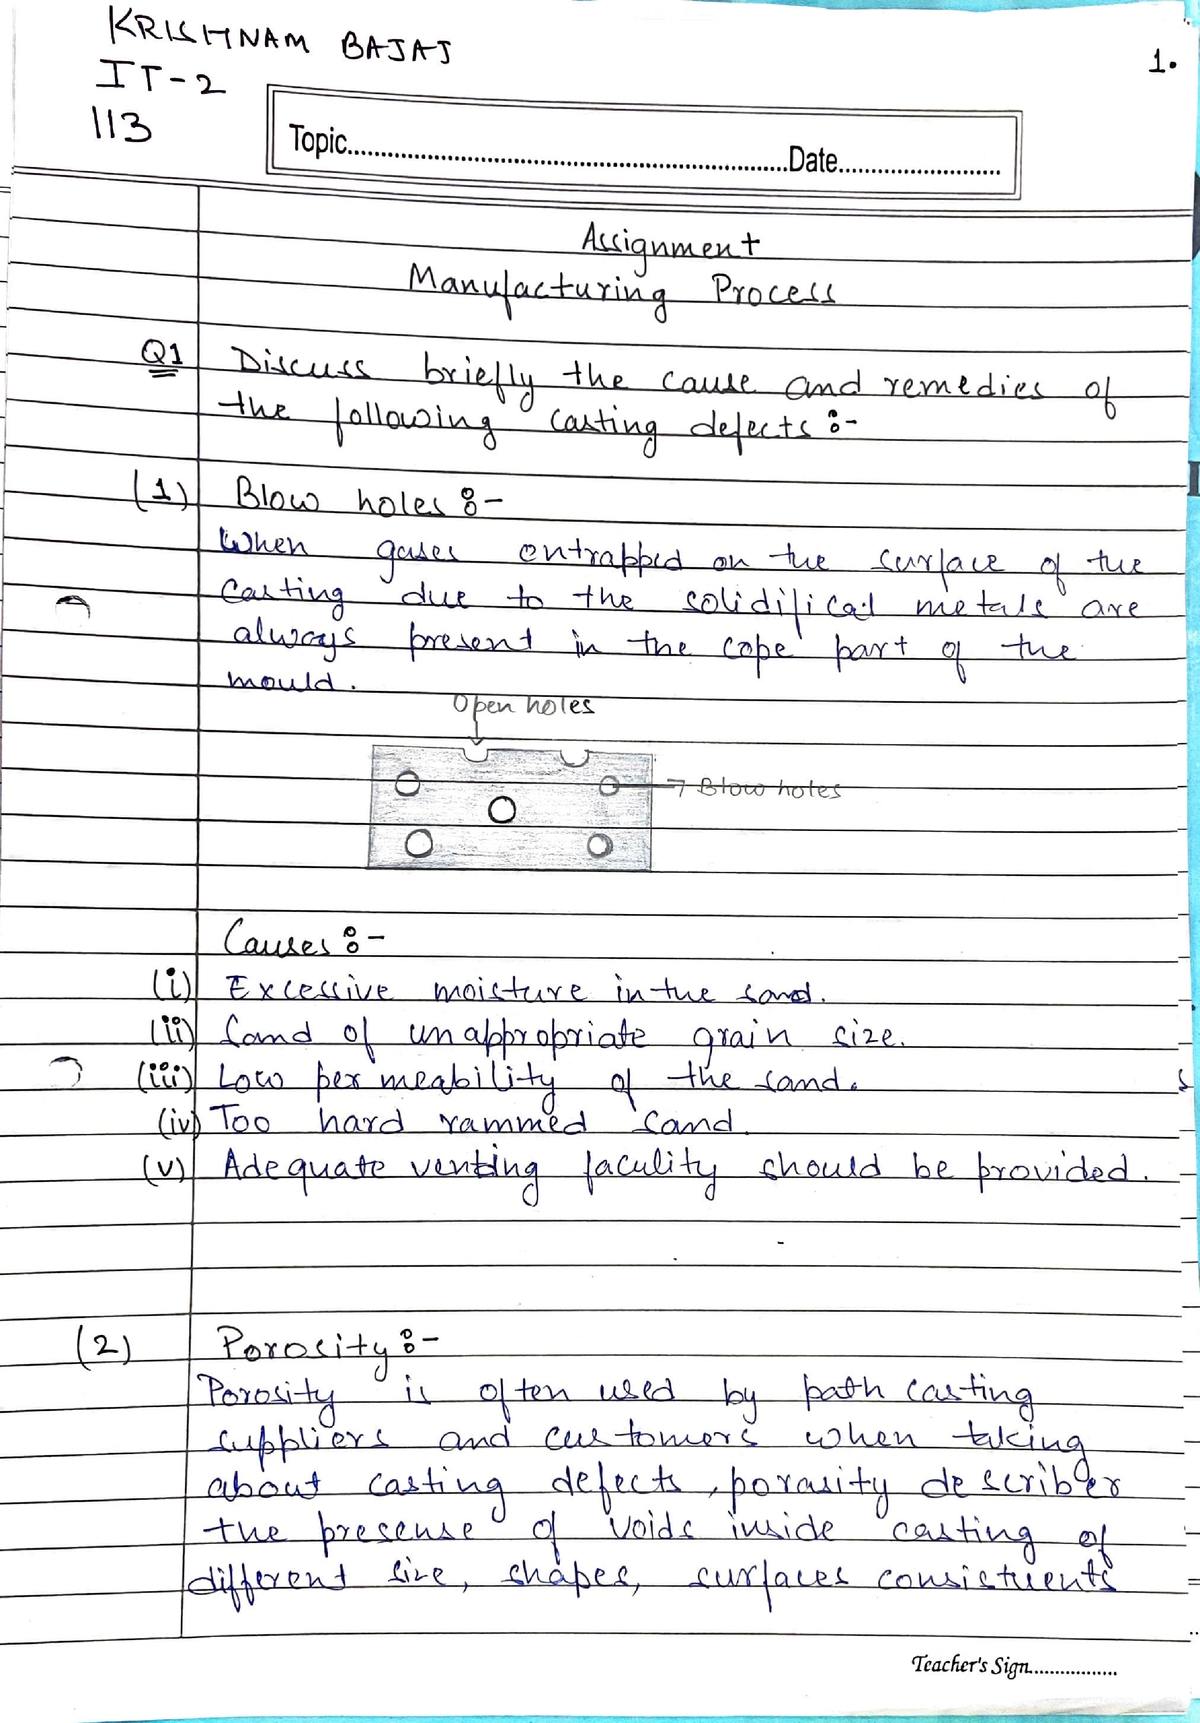 KRISHNAM BAJAJ
1.
IT-2
113
Topic..........Date..........
Assignment
Manufacturing Process
Q1 Discuss briefly the cause and remedies of
the following casting defects :-
(1) Blow holes :-
When gases entrapped on the surface of the
casting due to the solidified metals are
always present in the cope part of the
mould.
Open holes
Blow holes
Causes :-
(i) Excessive moisture in the sand.
(ii) Sand of unappropriate grain size.
(iii) Low permeability of the sand.
(iv) Too hard rammed sand.
(v) Adequate venting faculity should be provided.
(2) Porosity :-
Porosity is often used by path casting
suppliers and customers when taking
about casting defects, porasity describer
the presense of voids inside casting of
different size, shapes, surfaces consistuents
Teacher's Sign..........